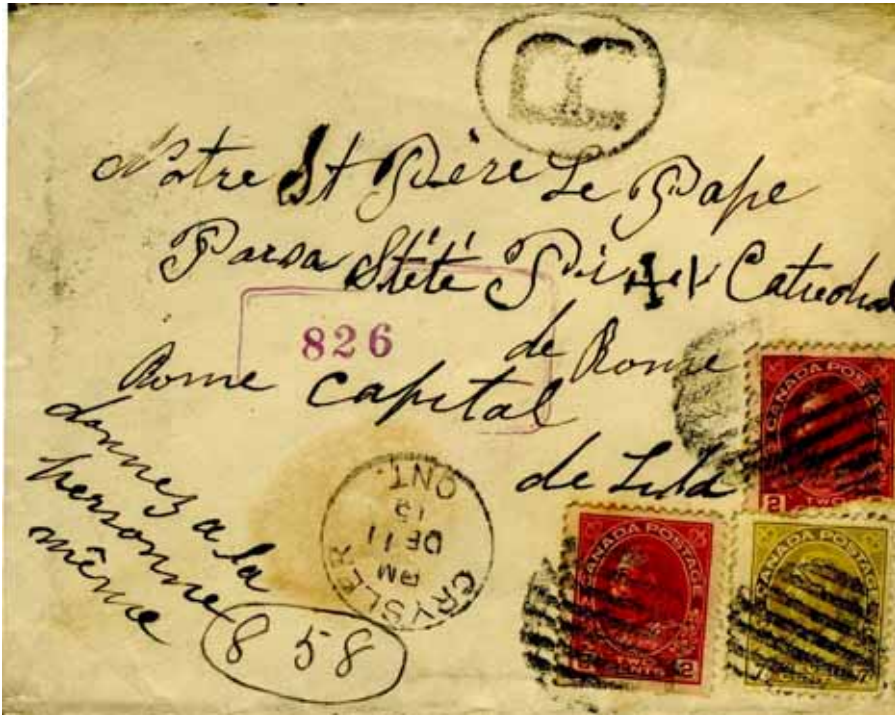 R
Notre St Père Le Pape
Parsa Stété Pi XI Catredral
de Rome
826
Rome Capital
de
donnez a la
personne
même
858
CRYSLER
AM
DE 11
19
ONT.
CANADA POSTAGE
2 TWO
CANADA POSTAGE
2 TWO CENTS 2
CANADA POSTAGE
7 7